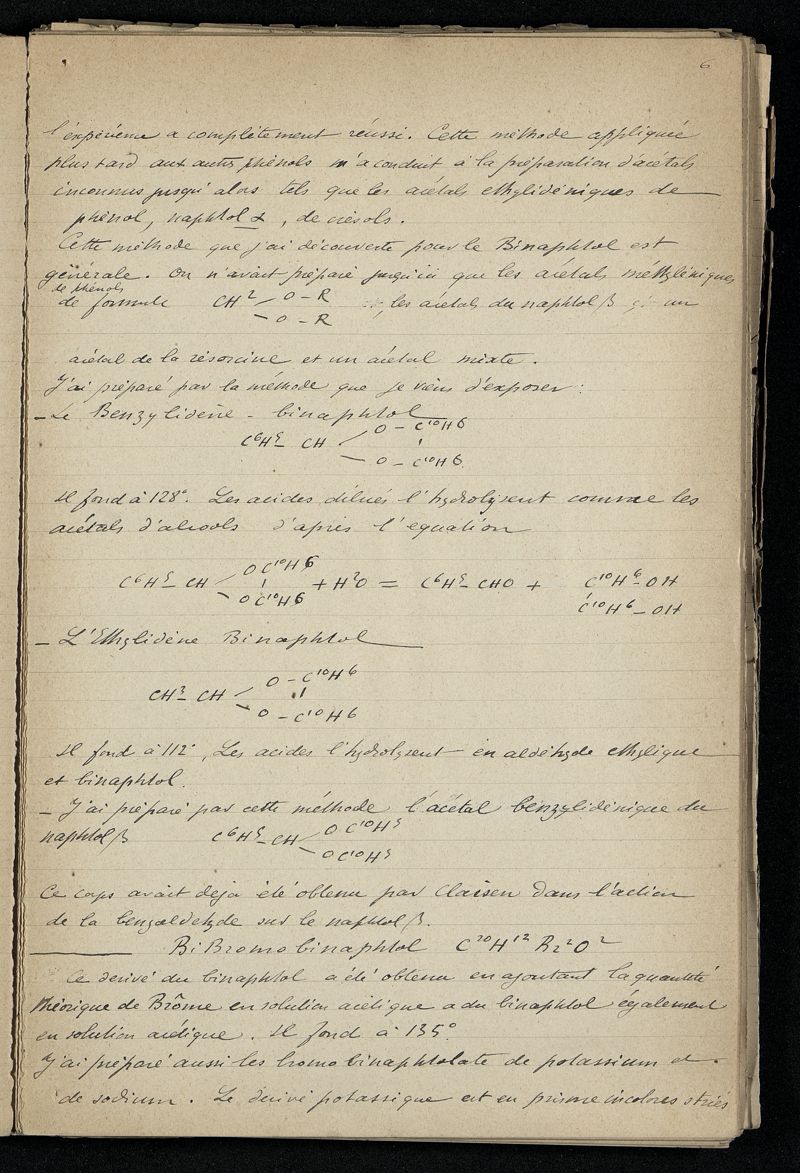 6
l'expérience a complètement réussi. Cette méthode appliquée
plus tard aux autres phénols m'a conduit à la préparation d'acétals
inconnus jusqu'alors tels que les acétals ethylidéniques de
phénol, naphtol α, de crésols.
Cette méthode que j'ai découverte pour le Binaphtol est
générale. On n'avait préparé jusqu'ici que les acétals méthyléniques
de phénols
de formule CH² O - R les acétals du naphtol β un
O - R
acétal de la résorcine et un acétal mixte.
J'ai préparé par la méthode que je viens d'exposer :
- Le Benzylidène - binaphtol
C⁶H⁵ - CH O - C¹⁰H⁶
O - C¹⁰H⁶
Il fond à 128°. Les acides dilués l'hydrolysent comme les
acétals d'alcools d'après l'equation
C⁶H⁵ - CH OC¹⁰H⁶ + H²O = C⁶H⁵ - CHO + C¹⁰H⁶ - OH
OC¹⁰H⁶ C¹⁰H⁶ - OH
- L'Ethylidène Binaphtol
CH³ - CH O - C¹⁰H⁶
O - C¹⁰H⁶
Il fond à 112°, Les acides l'hydrolysent en aldéhyde ethylique
et binaphtol.
- J'ai préparé par cette méthode l'acétal benzylidénique du
naphtol β C⁶H⁵ - CH O C¹⁰H⁵
OC¹⁰H⁵
Ce corps avait déja été obtenu par Claisen dans l'action
de la benzaldehyde sur le naphtol β.
BiBromobinaphtol C²⁰H¹²Br²O²
Ce derivé du binaphtol a été obtenu en ajoutant la quantité
théorique de Brôme en solution acétique a du binaphtol également
en solution acétique. Il fond à 135°
J'ai préparé aussi les bromobinaphtolate de potassium et
de sodium. Le derivé potassique est en prisme incolores striés